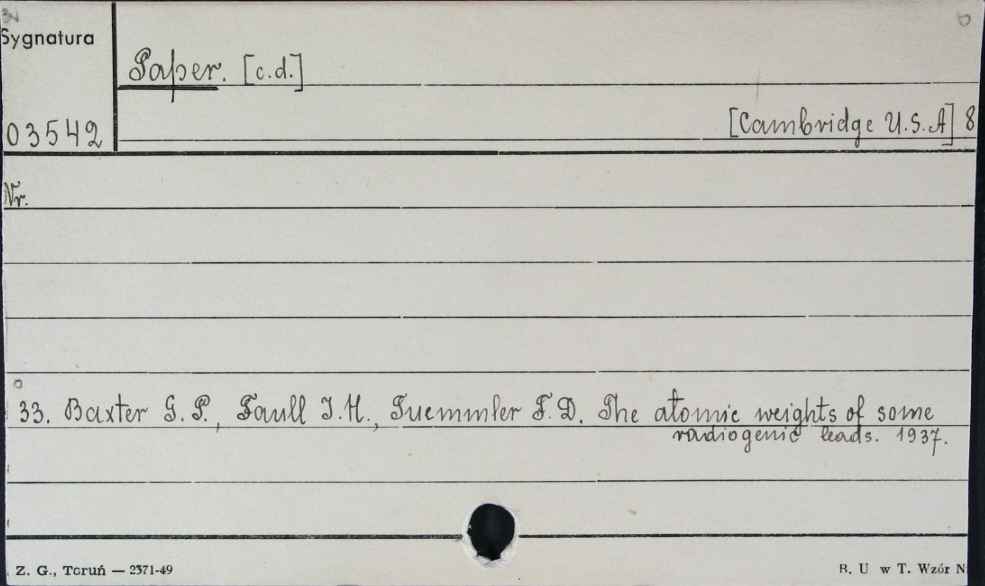 Sygnatura
Paper. [c.d.]
03542
[Cambridge U.S.A] 8
Nr.
33. Baxter G. P., Faull J. H., Tuemmler F. D. The atomic weights of some
radiogenic leads. 1937.
Z. G., Toruń — 2371-49
B. U w T. Wzór N